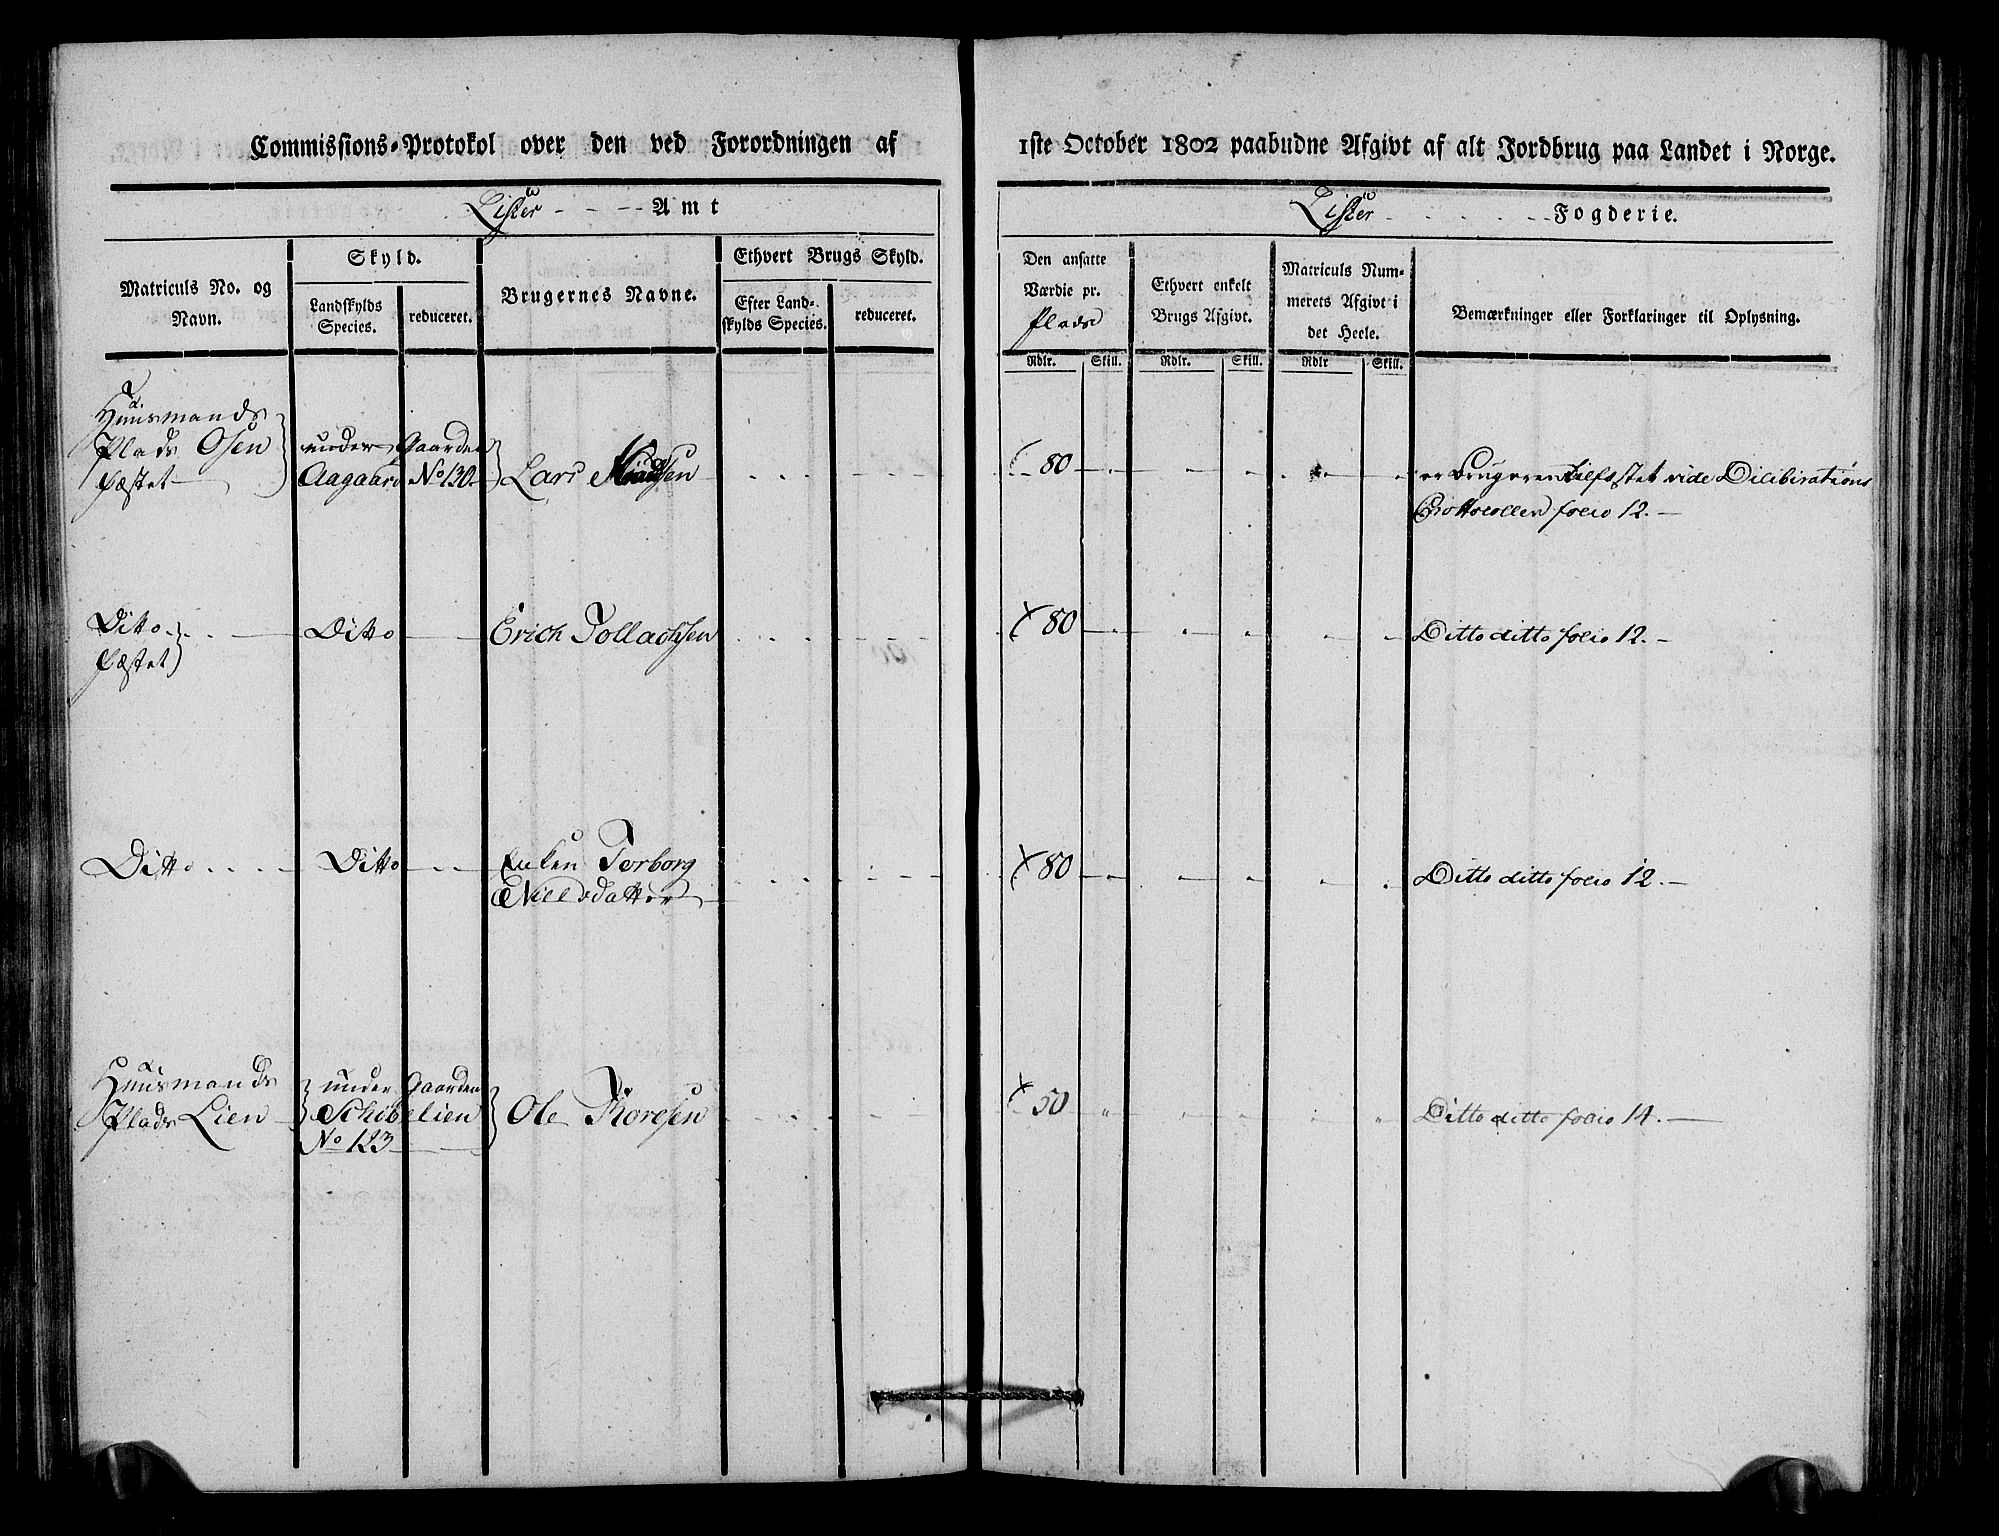 Commissions-Protokol over den ved Forordningen af
Lister - - - Amt
Matriculs No. og Navn.
Skyld.
Landskylds Species.
reduceret.
Brugernes Navne.
Ethvert Brugs Skyld.
Efter Land-
skylds Species.
reduceret.
Huusmands
Plads Osen
fæstet
under Gaarden
Aagaard No 130.
Lars
Ditto
fæstet
Ditto
Erich Tollachsen
Ditto
Ditto
Enken Torborg
Nielsdatter
Huusmands
Plads Lien
under Gaarden
Schibelien
No 123
Ole Thoresen
1ste October 1802 paabudne Afgivt af alt Jordbrug paa Landet i Norge.
Lister - - - Fogderie.
Den ansatte
Værdie pr.
Plads
Ethvert enkelt
Brugs Afgivt.
Matriculs Num-
merets Afgivt i
det Heele.
Bemærkninger eller Forklaringer til Oplysning.
Rdlr. Skill. Rdlr. Skill. Rdlr Skill.
80
er Brugeren vide Dilibirations
Prottocollen folio 12.
80
Ditto ditto folio 12.
80
Ditto ditto folio 12.
50
Ditto ditto folio 14.